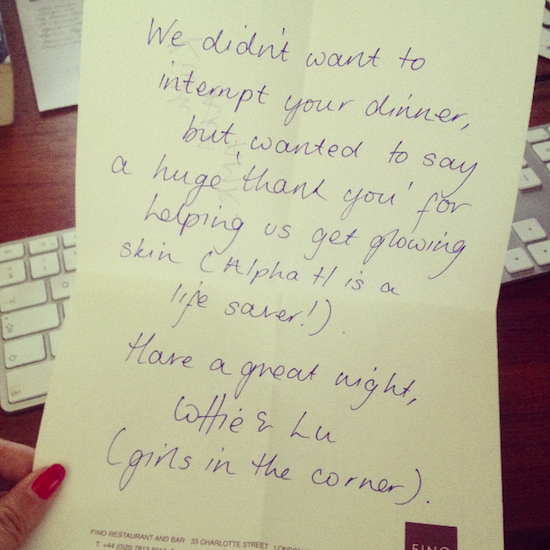 We didn't want to
interrupt your dinner,
but, wanted to say
a huge 'thank you' for
helping us get glowing
skin (Alpha H is a
life saver!).
Have a great night,
Lottie & Lu
(girls in the corner).
FINO RESTAURANT AND BAR 33 CHARLOTTE STREET LONDON
FINO